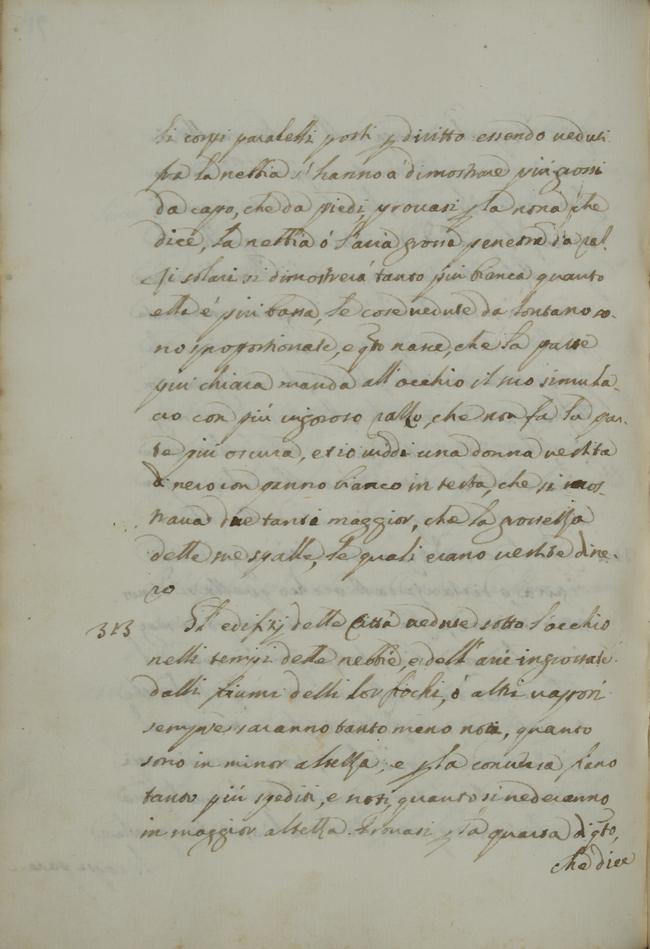 Li corpi paralelli posti p diritto essendo veduti
fra la nebbia s'hanno à dimostrare più grossi
da capo, che da piedi, provasi p la nona che
dice, la nebbia ó l'aria grossa penetrata da ral-
li solari si dimostrerá tanto più bianca quanto
ella é più bassa, le cose vedute da lontano so-
no sproportionate, e qto nasce, che la parte
piu chiara manda all'occhio il suo simula-
cro con più vigoroso rallo, che non fa la par-
te più oscura, et io viddi una donna vestita
di nero con panno bianco in testa, che si mos-
trava due tanti maggior, che la grossezza
delle sue spalle, le quali erano vestite di ne-
ro
313 Gl' edifizj delle Cittá vedute sotto l'occhio
nelli tempi delle nebbie, e dell'arie ingrossate
dalli fiumi delli lor fochi, ó altri vapori
sempre saranno tanto meno noti, quanto
sono in minor altezza, e p la conversa fieno
tanto più spediti, e noti, quanto si vederanno
in maggior altezza. Provasi p la quarta di qto,
che dice